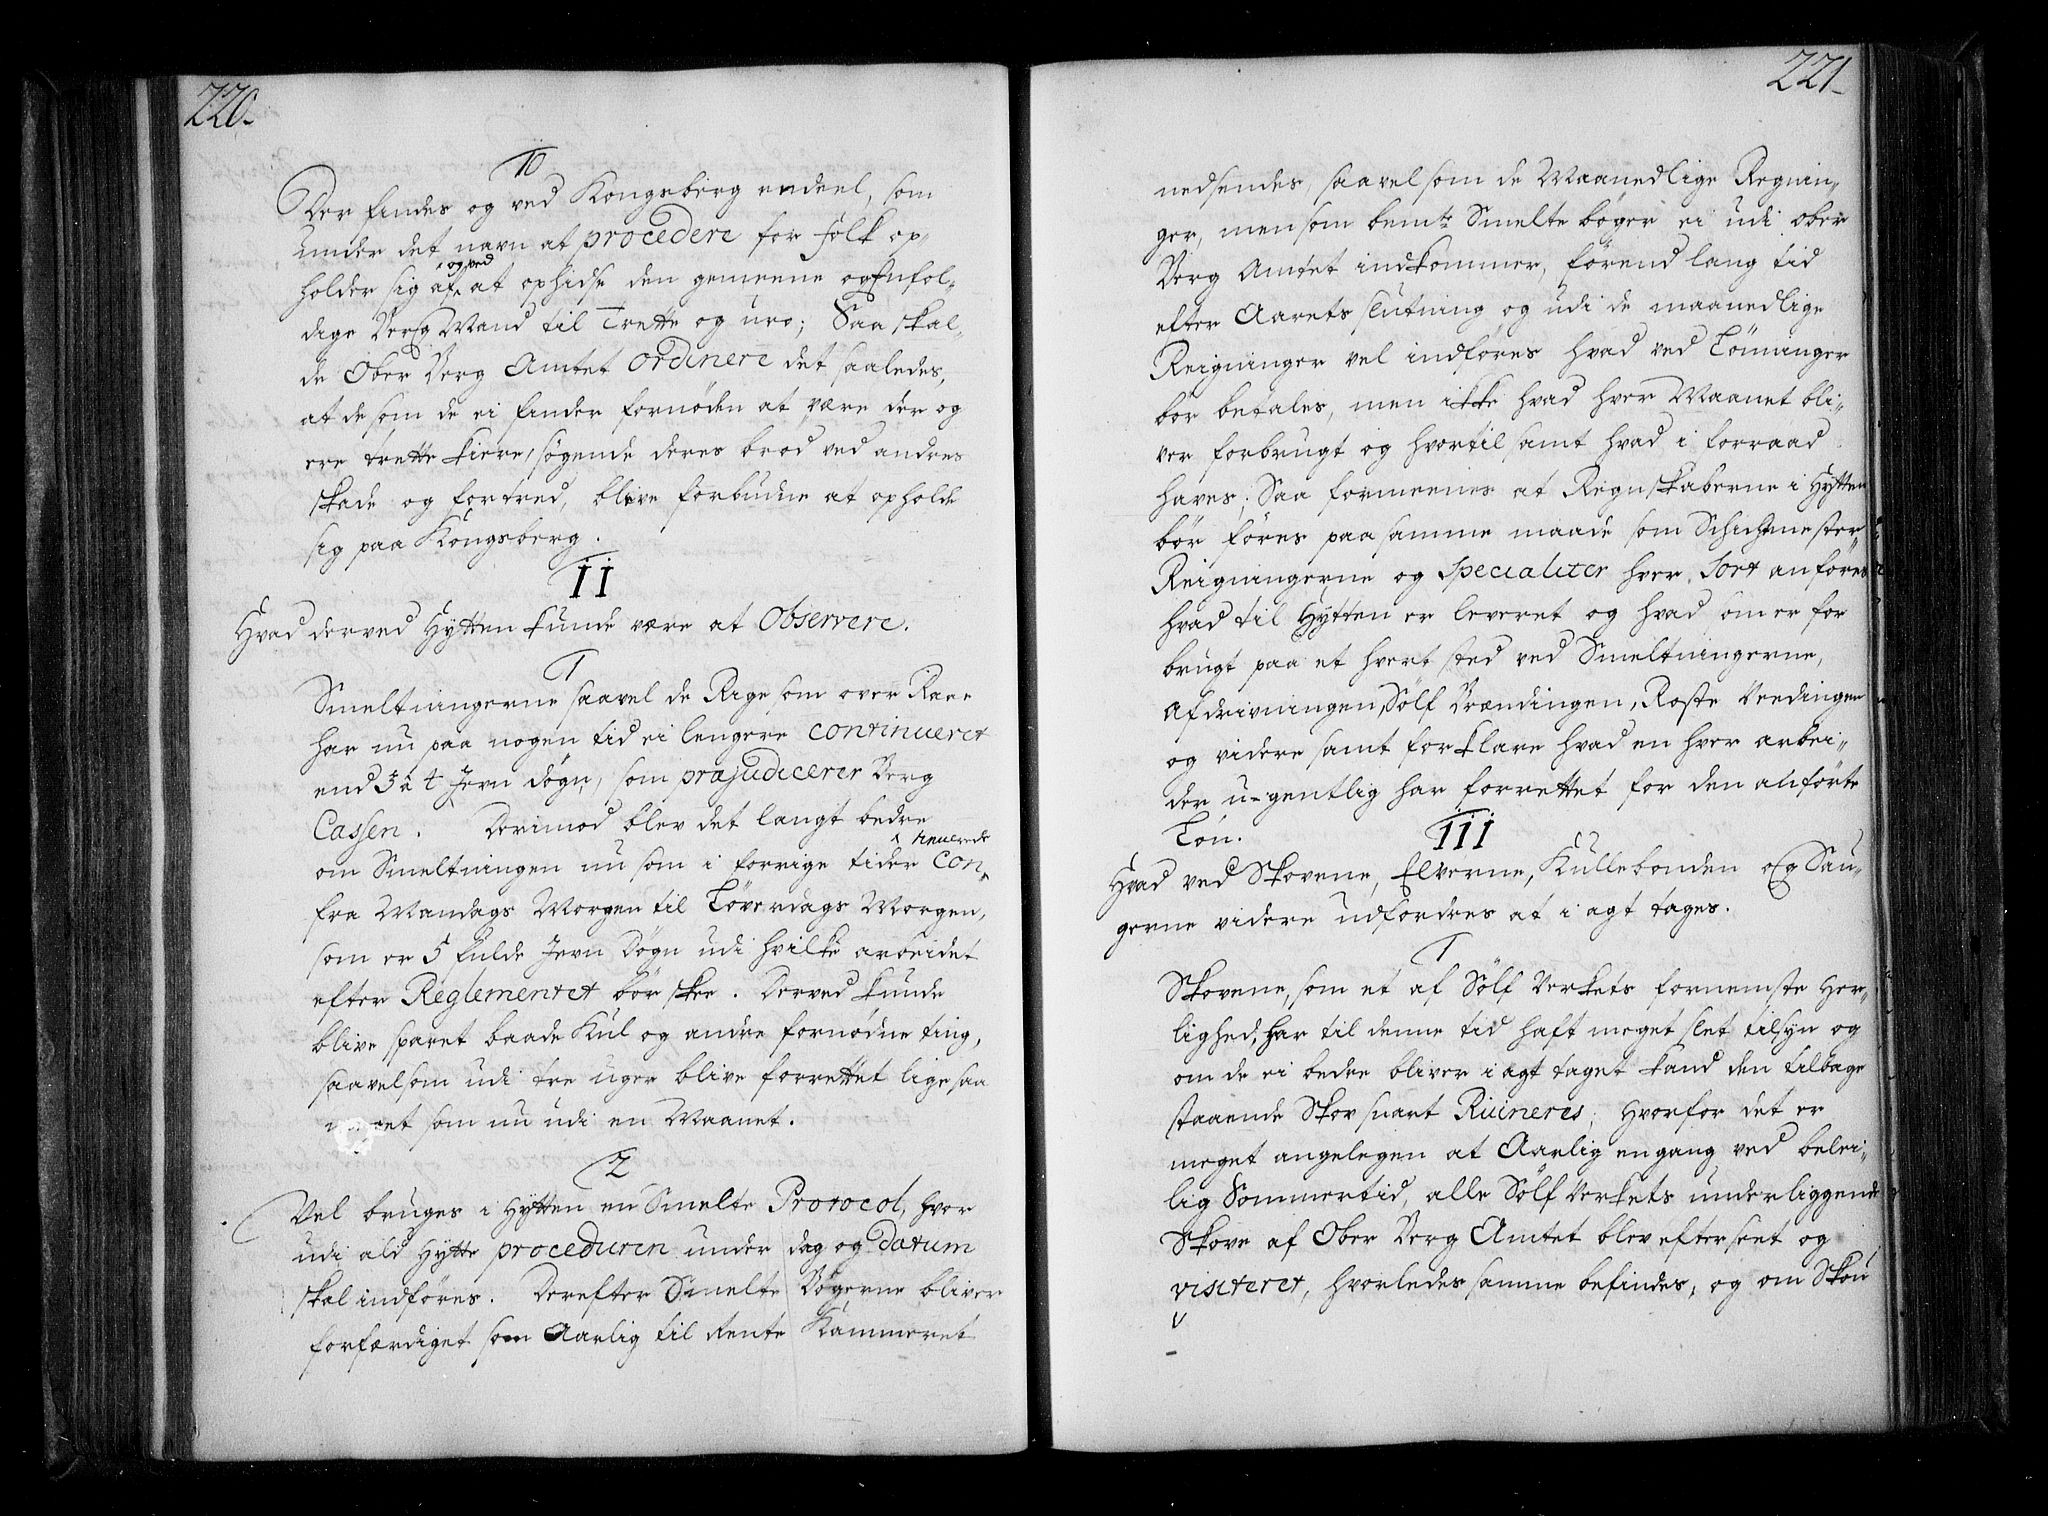 220.
10
Der findes og ved Kongsberg endeel, som
under det navn at procedere for folk op„
holder sig af og ved at ophidse den gemeene og Enfol„
dige Berg Mand til Trette og uro; Saa skal„
de Ober Berg Amtet ordinere det saaledes,
at de som de ei finder fornøden at være der og
ere trette kiere, søgende deres brød ved andres
skade og fortred, blive forbudne at opholde
sig paa Kongsberg.
II
Hvad derved Hytten kunde være at Observere.
1
Smeltningerne saavel de Rige som over Raae
har nu paa nogen tid ei lengere continueret
end 3 à 4 Jevn døgn, som præjudicerer Berg
Cassen. Derimod blev det langt bedre
om Smeltningen nu som i forrige tider con„
tinuerede
fra Mandags Morgen til Løverdags Morgen,
som er 5 fulde Jevn Døgn udi hvilke arbeidet
efter Reglementet bør skee. Derved kunde
blive sparet baade Kul og andre fornødne ting,
saavelsom udi tre uger blive forrettet lige saa
meget som nu udi en Maanet.
2
Vel bruges i Hytten en Smelte Protocol, hvor
udi ald Hytte proceduren under dag og datum
skal indføres. Derefter Smelte Bøgerne bliver
forfærdiget som Aarlig til Rente Kammeret
221
nedsendes, saavelsom de Maanedlige Regnin„
ger, mensom bemte Smelte bøger ei udi ober
Berg Amtet indkommer, førend lang tid
efter Aarets slutning og udi de maanedlige
Reigninger vel indføres hvad ved Lønninger
bør betales, men ikke hvad hver Maanet bli„
ver forbrugt og hvortil samt hvad i forraad
haves; Saa formeenes at Regnskaberne i Hytten
bør føres paa samme maade som Schichtmester„
Reigningerne og Specialiter hver Sort anføres
hvad til Hytten er leveret og hvad om er for
brugt paa et hvert sted ved Smeltningerne,
Afdrivningen, Sølf Brændingen, Roste Vendingen
og videre samt forklare hvad en hver arbei„
der u-gentlig har forrettet for den anførte
Løn.
III
Hvad ved Skovene, Elverne, Kullebonden og Sau„
gerne videre udfordres at i agt tages.
1
Skovene, som et af Sølf Verkets fornemste Her„
lighed, har til denne tid haft meget slet tilsyn og
om de ei bedre bliver i agt taget kand den tilbage
staaende Skov snart Ruineres; Hvorfor det er
meget angelegen at Aarlig engang ved belei„
lig Sommertid, alle Sølf Verkets underliggende
Skove af Ober Berg Amtet blev efterseet og
visiteret, hvorledes samme befindes, og om Skou